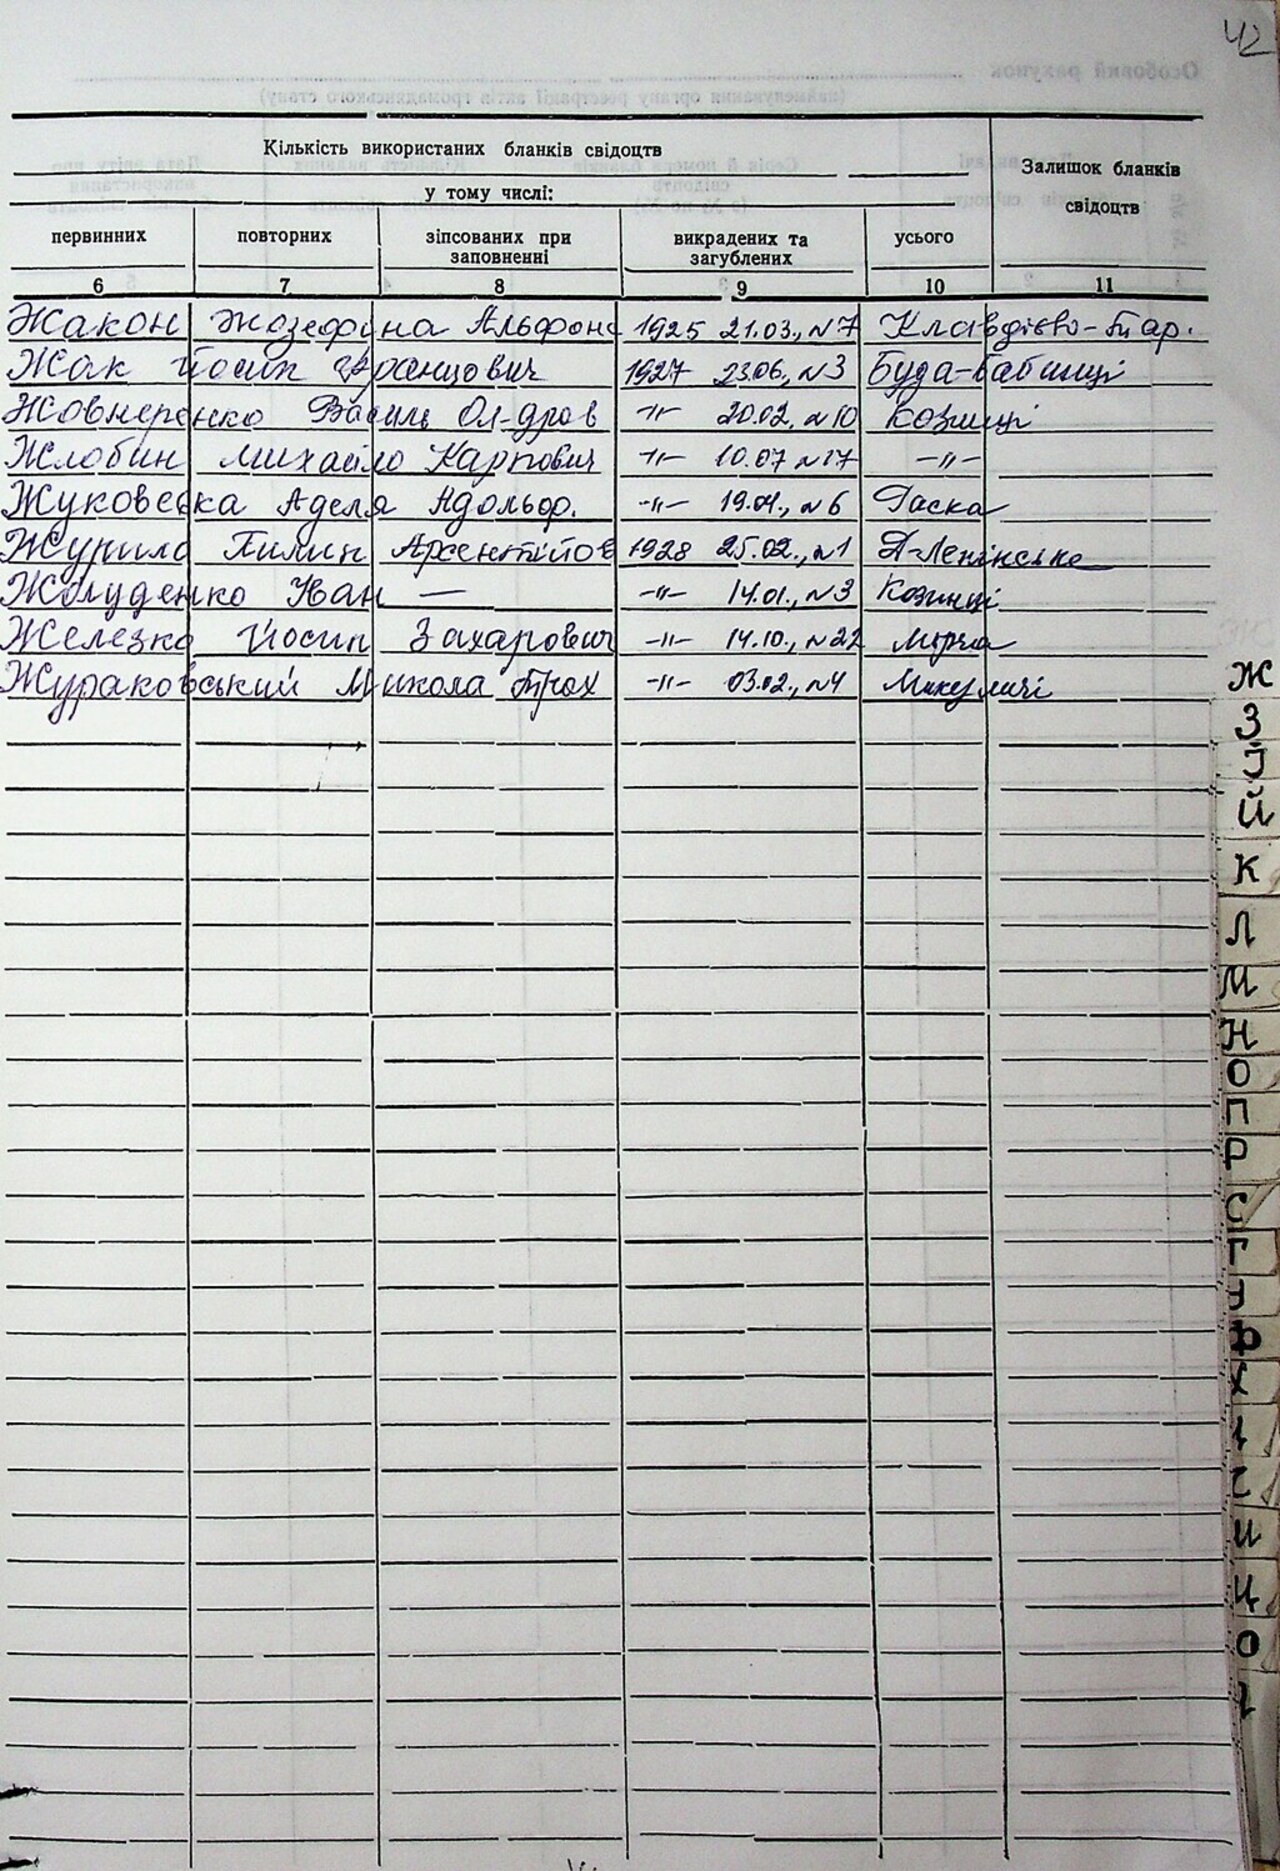 42
Кількість використаних бланків свідоцтв
Залишок бланків свідоцтв
у тому числі:
первинних повторних зіпсованих при заповненні викрадених та загублених усього
6 7 8 9 10 11
Жакон Жозефіна Альфонс 1925 21.03., №7 Клавдієво-Тар.
Жак Йосип Францович 1927 23.06., №3 Буда-Бабинці
Жовнеренко Василь Ол-дров -"- 20.02, №10 Козинці
Жлобин Михайло Карпович -"- 10.07 №17 -"-
Жуковська Аделя Адольф. -"- 19.04., №6 Раска
Журило Пилип Арсентійов 1928 25.02., №1 П-Ленінське
Жолуденко Іван — -"- 14.01., №3 Козинці
Железко Йосип Захарович -"- 14.10., №22 Мірча
Жураковський Микола Трох -"- 03.02., №4 Микуличі
Ж
З
І
Й
К
Л
М
Н
О
П
Р
С
Т
У
Ф
Х